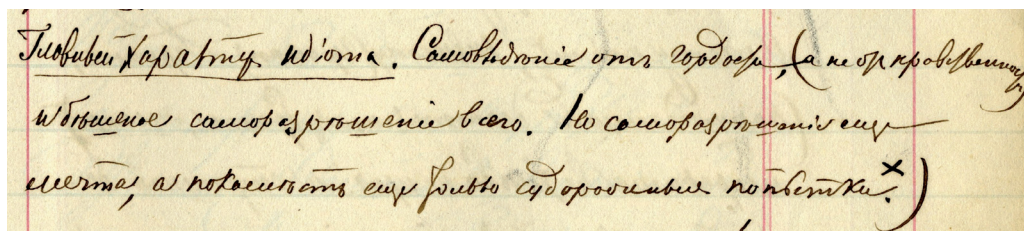 Главный характер идіота. Самовладѣніе отъ гордости, (а не отъ нравственности)
и бѣшеное саморазрѣшеніе всего. Но саморазрѣшеніе еще
мечта, а покамѣстъ еще только судорожныя попытки.×)